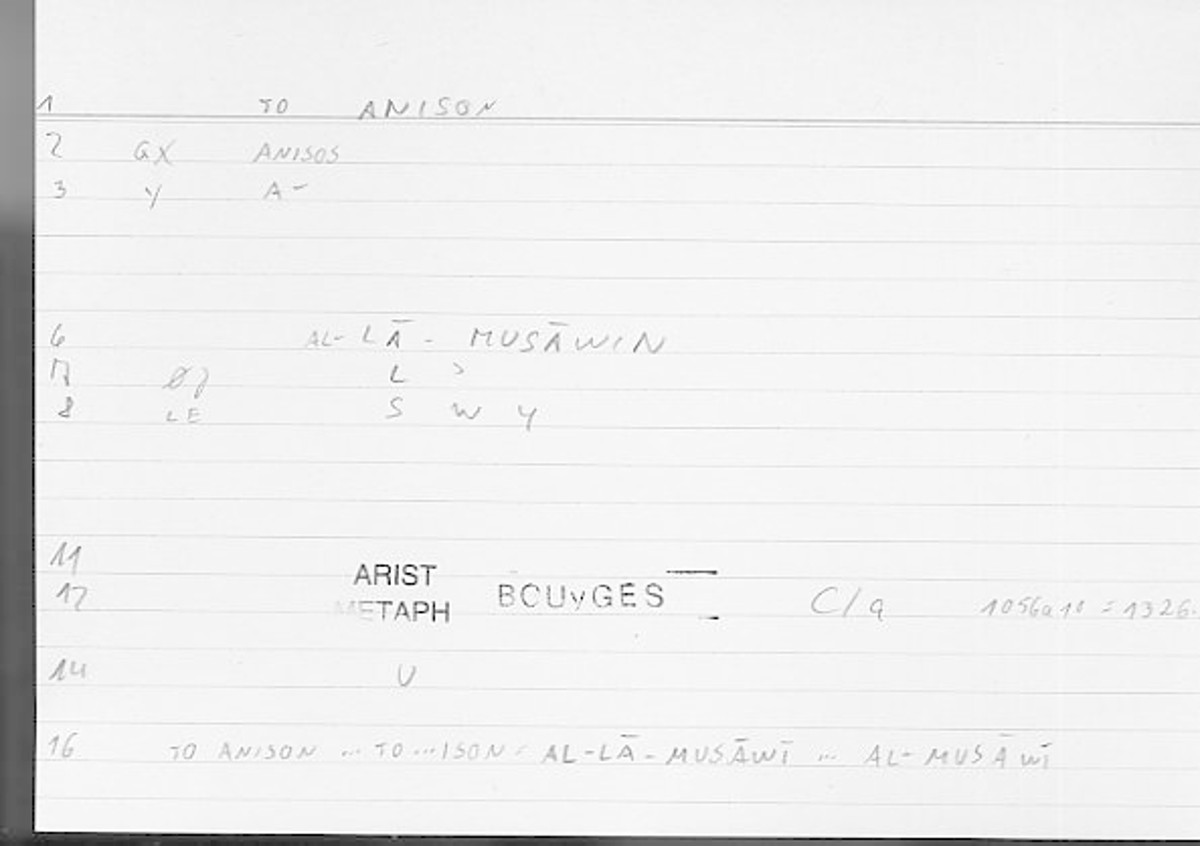 1 TO ANISON
2 GX ANISOS
3 Y A-
6 AL-LĀ- MUSĀWIN
L >
8 LE S W Y
11 ARIST
12 METAPH BOUYGES C/9 1056a10 = 1326.
14 U
16 TO ANISON ... TO ... ISON = AL-LĀ-MUSĀWĪ ... AL-MUSĀWĪ